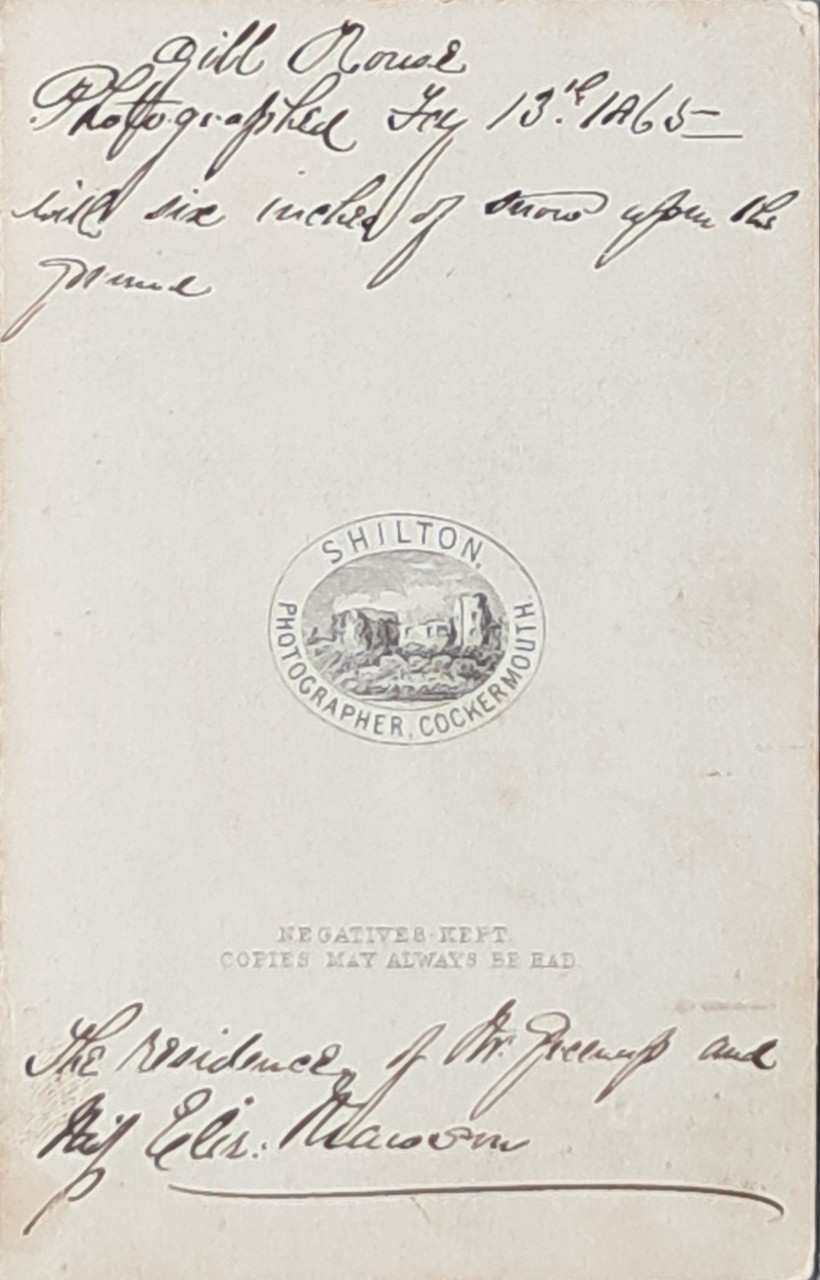 Gill House
Photographed Fey 13th. 1865
with six inches of snow upon the
ground
SHILTON,
PHOTOGRAPHER, COCKERMOUTH.
NEGATIVES KEPT
COPIES MAY ALWAYS BE HAD
The residence, of Mr. Greenup and
Miss Eliz: